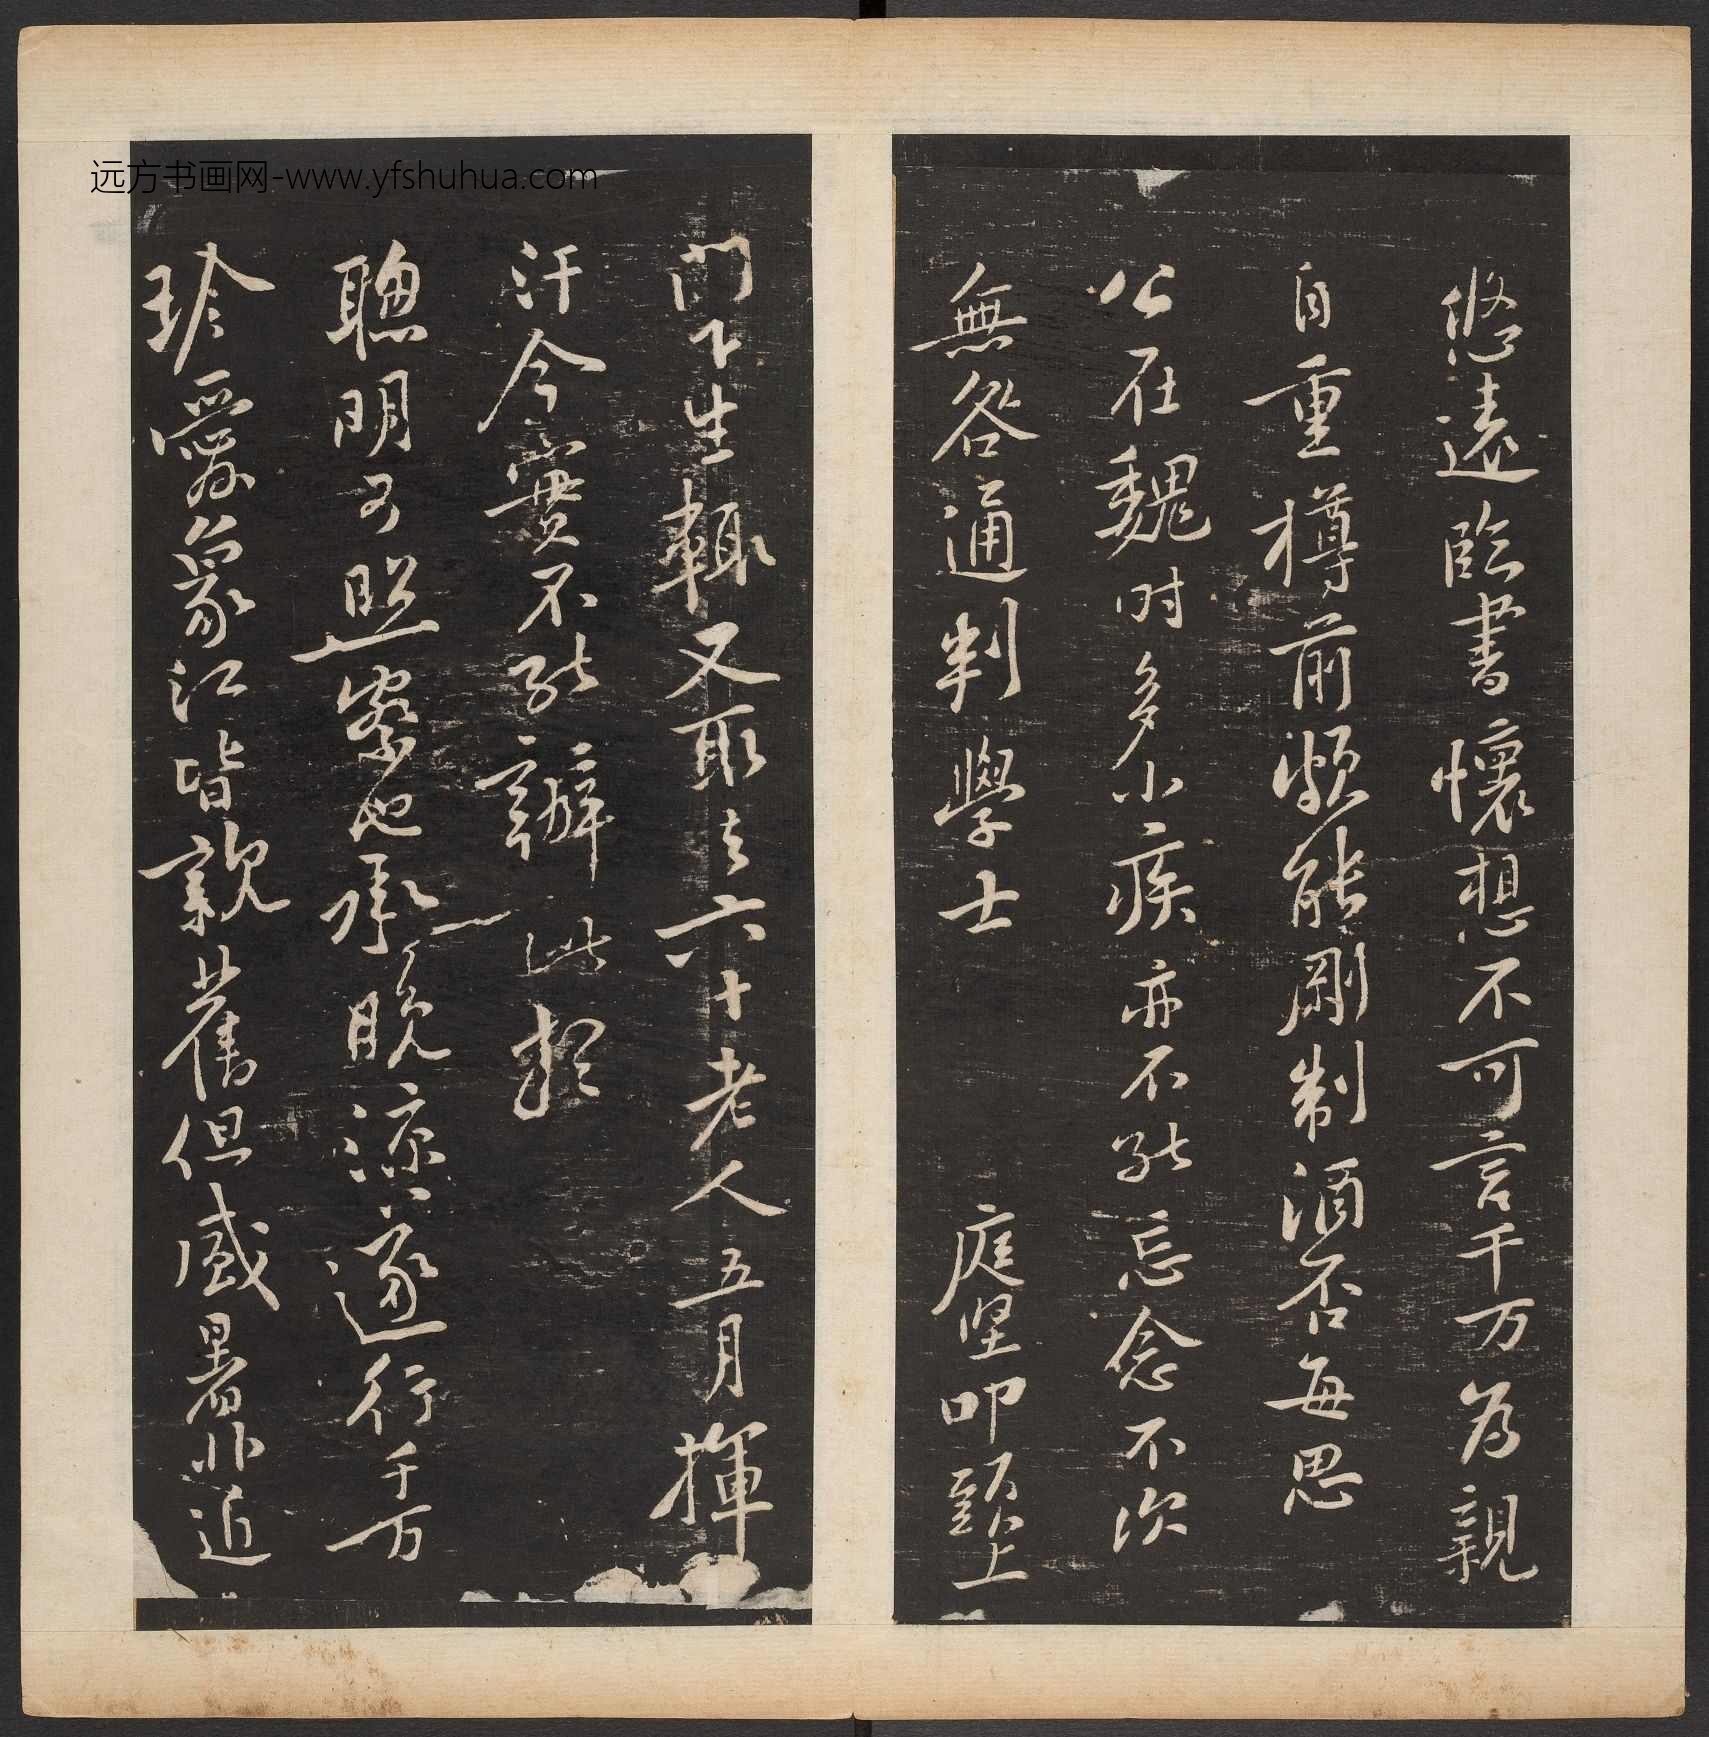 远方书画网-www.yfshuhua.com
悠遠臨書懷想不可言千万為親
自重樽前頗能剛制酒否每思
公在魏时多小疾亦不能忘念不次
無咎通判學士 庭坚叩頭上
門下生輒又取去六十老人五月揮
汗今實不能辦此想
聰明可照察也承晚涼遂行千万
珍愛象江皆親舊但盛暑非近